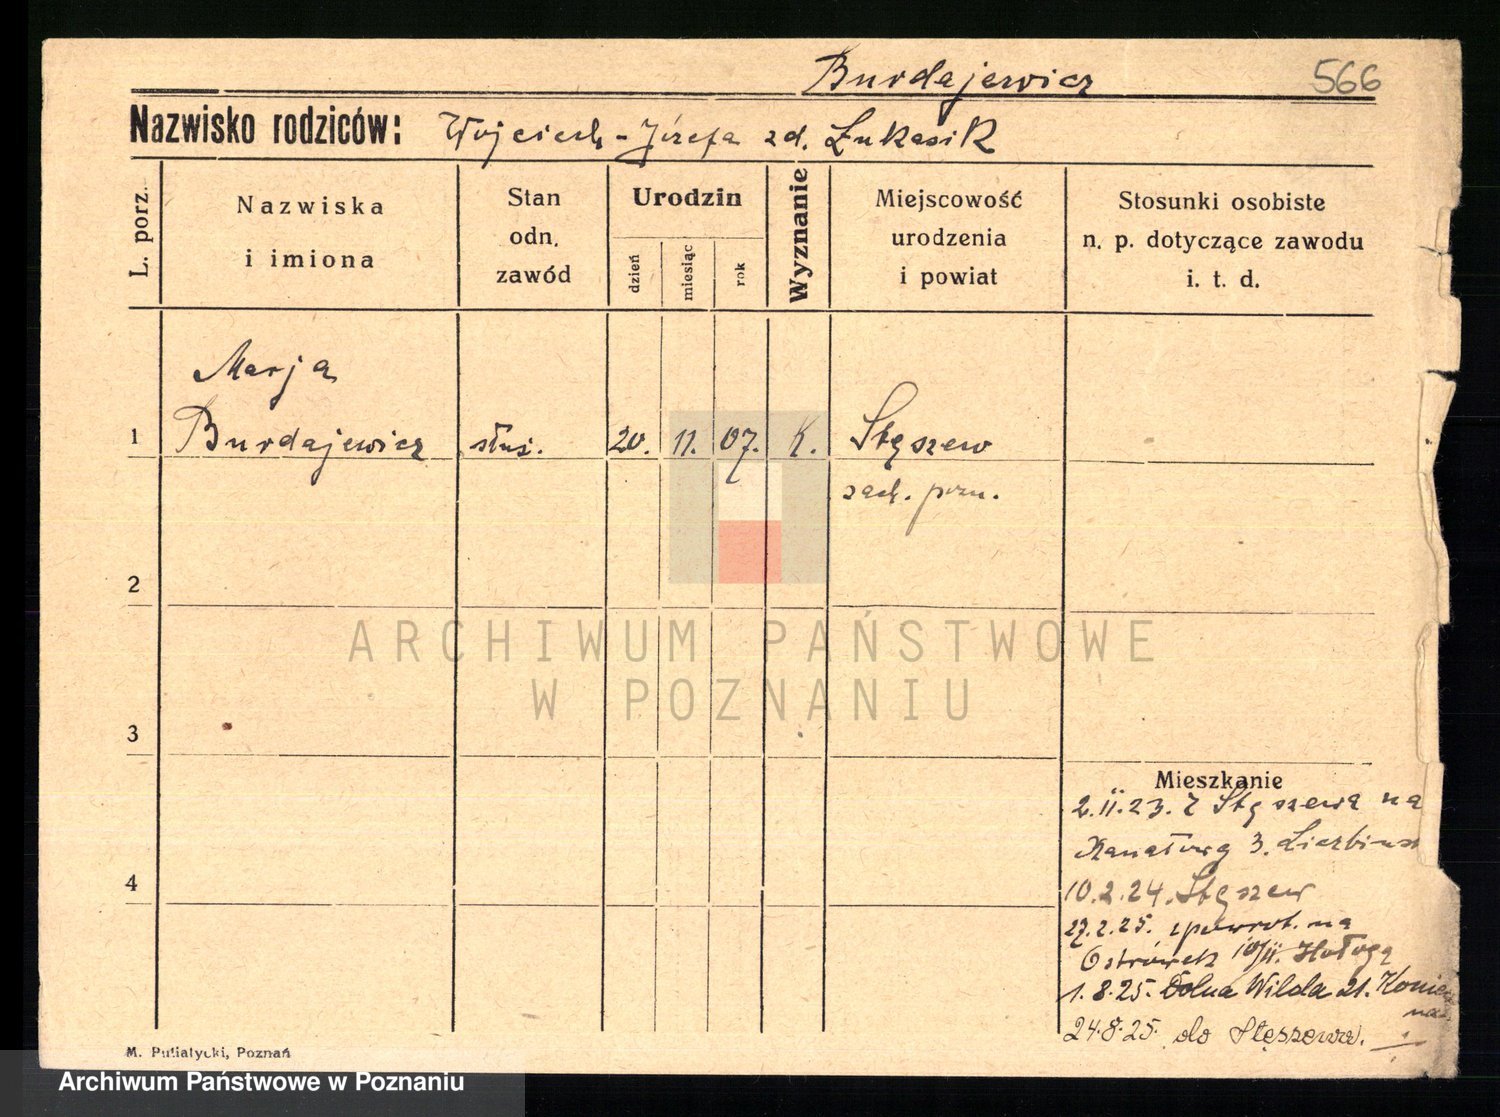 Burdajewicz 566
Nazwisko rodziców: Wojciech - Józefa zd. Łukasik
L. porz.
Nazwiska
i imiona
Stan
odn.
zawód
Urodzin
dzień
miesiąc
rok
Wyznanie
Miejscowość
urodzenia
i powiat
Stosunki osobiste
n. p. dotyczące zawodu
i. t. d.
Marja
1 Burdajewicz służ. 20. 11. 07. K. Stęszew
zach. pozn.
2
ARCHIWUM PAŃSTWOWE
W POZNANIU
3
Mieszkanie
2.II.23. z Stęszewa na
Kanałową 3.
4
10.2.24. Stęszew
27.2.25. zpowrot. na
Ostrówek 10/II.
1.8.25. Dolna Wilda 21.
24.8.25. do Stęszewa.
M. Putiatycki, Poznań
Archiwum Państwowe w Poznaniu